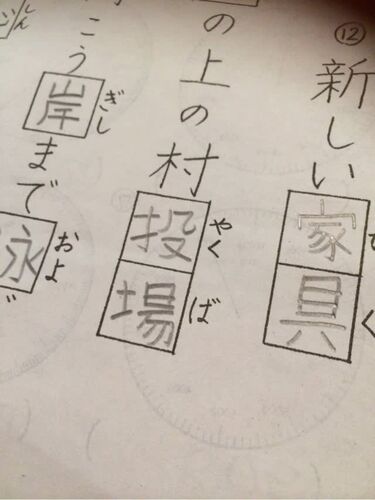 ⑫
新しい家具
の上の村投場
やくば
こう岸まで
ぎし
泳
およ
しん